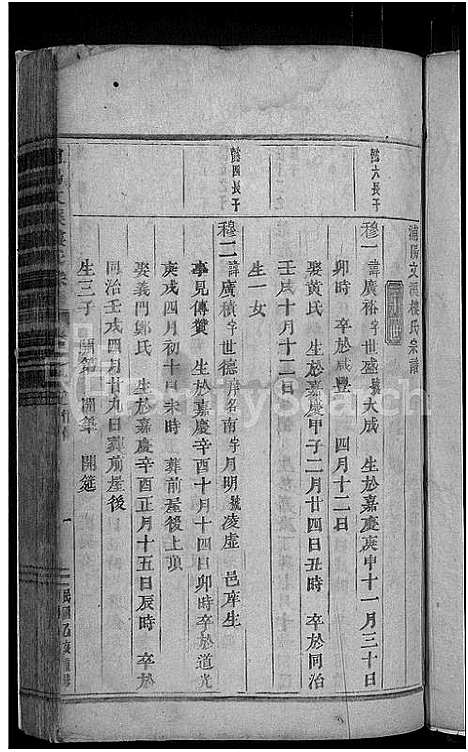 浦陽文溪樓氏宗譜
六長子
穆一 諱廣裕字世盛號大成 生於嘉慶庚申十一月三十日
卯時 卒於咸豐 四月十二日
娶黃氏 生於嘉慶甲子二月廿四日丑時 卒於同治
壬戌十月十二日
生一女
四長子
穆二 諱廣積字世德庠名南字月明號凌虛 邑庠生
事見傳贊 生於嘉慶辛酉十月十四日卯時卒於道光
庚戌四月初十日未時 葬前屋後上墳
娶義門鄭氏 生於嘉慶辛酉正月十五日辰時 卒於
同治壬戌四月廿九日葬前屋後
生三子 開第 開 開筵
一
民國乙亥重修
FamilySearch